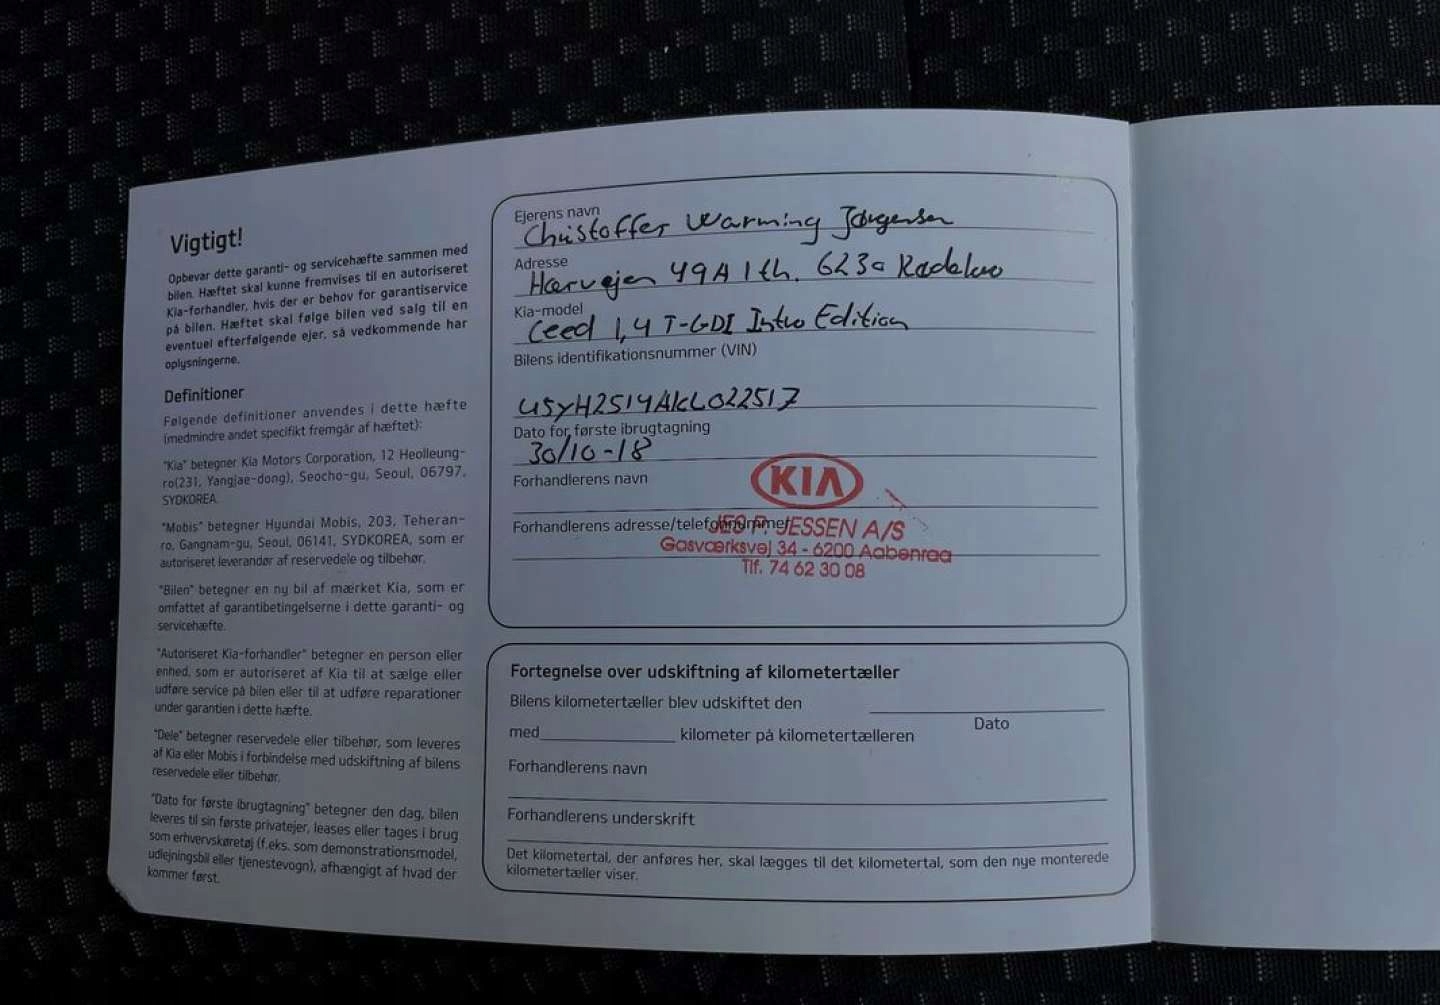 Vigtigt!
Opbevar dette garanti- og servicehæfte sammen med
bilen. Hæftet skal kunne fremvises til en autoriseret
Kia-forhandler, hvis der er behov for garantiservice
på bilen. Hæftet skal følge bilen ved salg til en
eventuel efterfølgende ejer, så vedkommende har
oplysningerne.
Definitioner
Følgende definitioner anvendes i dette hæfte
(medmindre andet specifikt fremgår af hæftet):
"Kia" betegner Kia Motors Corporation, 12 Heolleung-
ro(231, Yangjae-dong), Seocho-gu, Seoul, 06797,
SYDKOREA.
"Mobis" betegner Hyundai Mobis, 203, Teheran-
ro, Gangnam-gu, Seoul, 06141, SYDKOREA, som er
autoriseret leverandør af reservedele og tilbehør.
"Bilen" betegner en ny bil af mærket Kia, som er
omfattet af garantibetingelserne i dette garanti- og
servicehæfte.
"Autoriseret Kia-forhandler" betegner en person eller
enhed, som er autoriseret af Kia til at sælge eller
udføre service på bilen eller til at udføre reparationer
under garantien i dette hæfte.
"Dele" betegner reservedele eller tilbehør, som leveres
af Kia eller Mobis i forbindelse med udskiftning af bilens
reservedele eller tilbehør.
"Dato for første ibrugtagning" betegner den dag, bilen
leveres til sin første privatejer, leases eller tages i brug
som erhvervskøretøj (f.eks. som demonstrationsmodel,
udlejningsbil eller tjenestevogn), afhængigt af hvad der
kommer først.
Ejerens navn
Christoffer Warming Jørgensen
Adresse
Hærvejen 49A 1 th. 6230 Rødekro
Kia-model
Ceed 1,4 T-GDI Intro Edition
Bilens identifikationsnummer (VIN)
U5YH2514AKL022517
Dato for første ibrugtagning
30/10-18
Forhandlerens navn
KIA
Forhandlerens adresse/telefonnummer
JESSEN A/S
Gasværksvej 34 - 6200 Aabenraa
Tlf. 74 62 30 08
Fortegnelse over udskiftning af kilometertæller
Bilens kilometertæller blev udskiftet den
Dato
med kilometer på kilometertælleren
Forhandlerens navn
Forhandlerens underskrift
Det kilometertal, der anføres her, skal lægges til det kilometertal, som den nye monterede
kilometertæller viser.